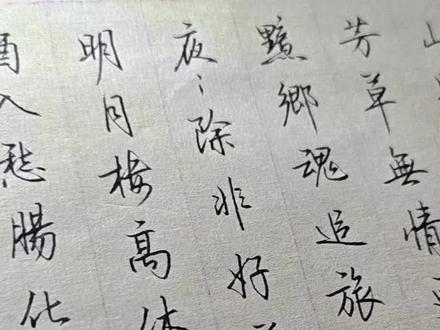 山
芳草無情
黯鄉魂追旅
夜〻除非好
明月楼高休
酒入愁腸化